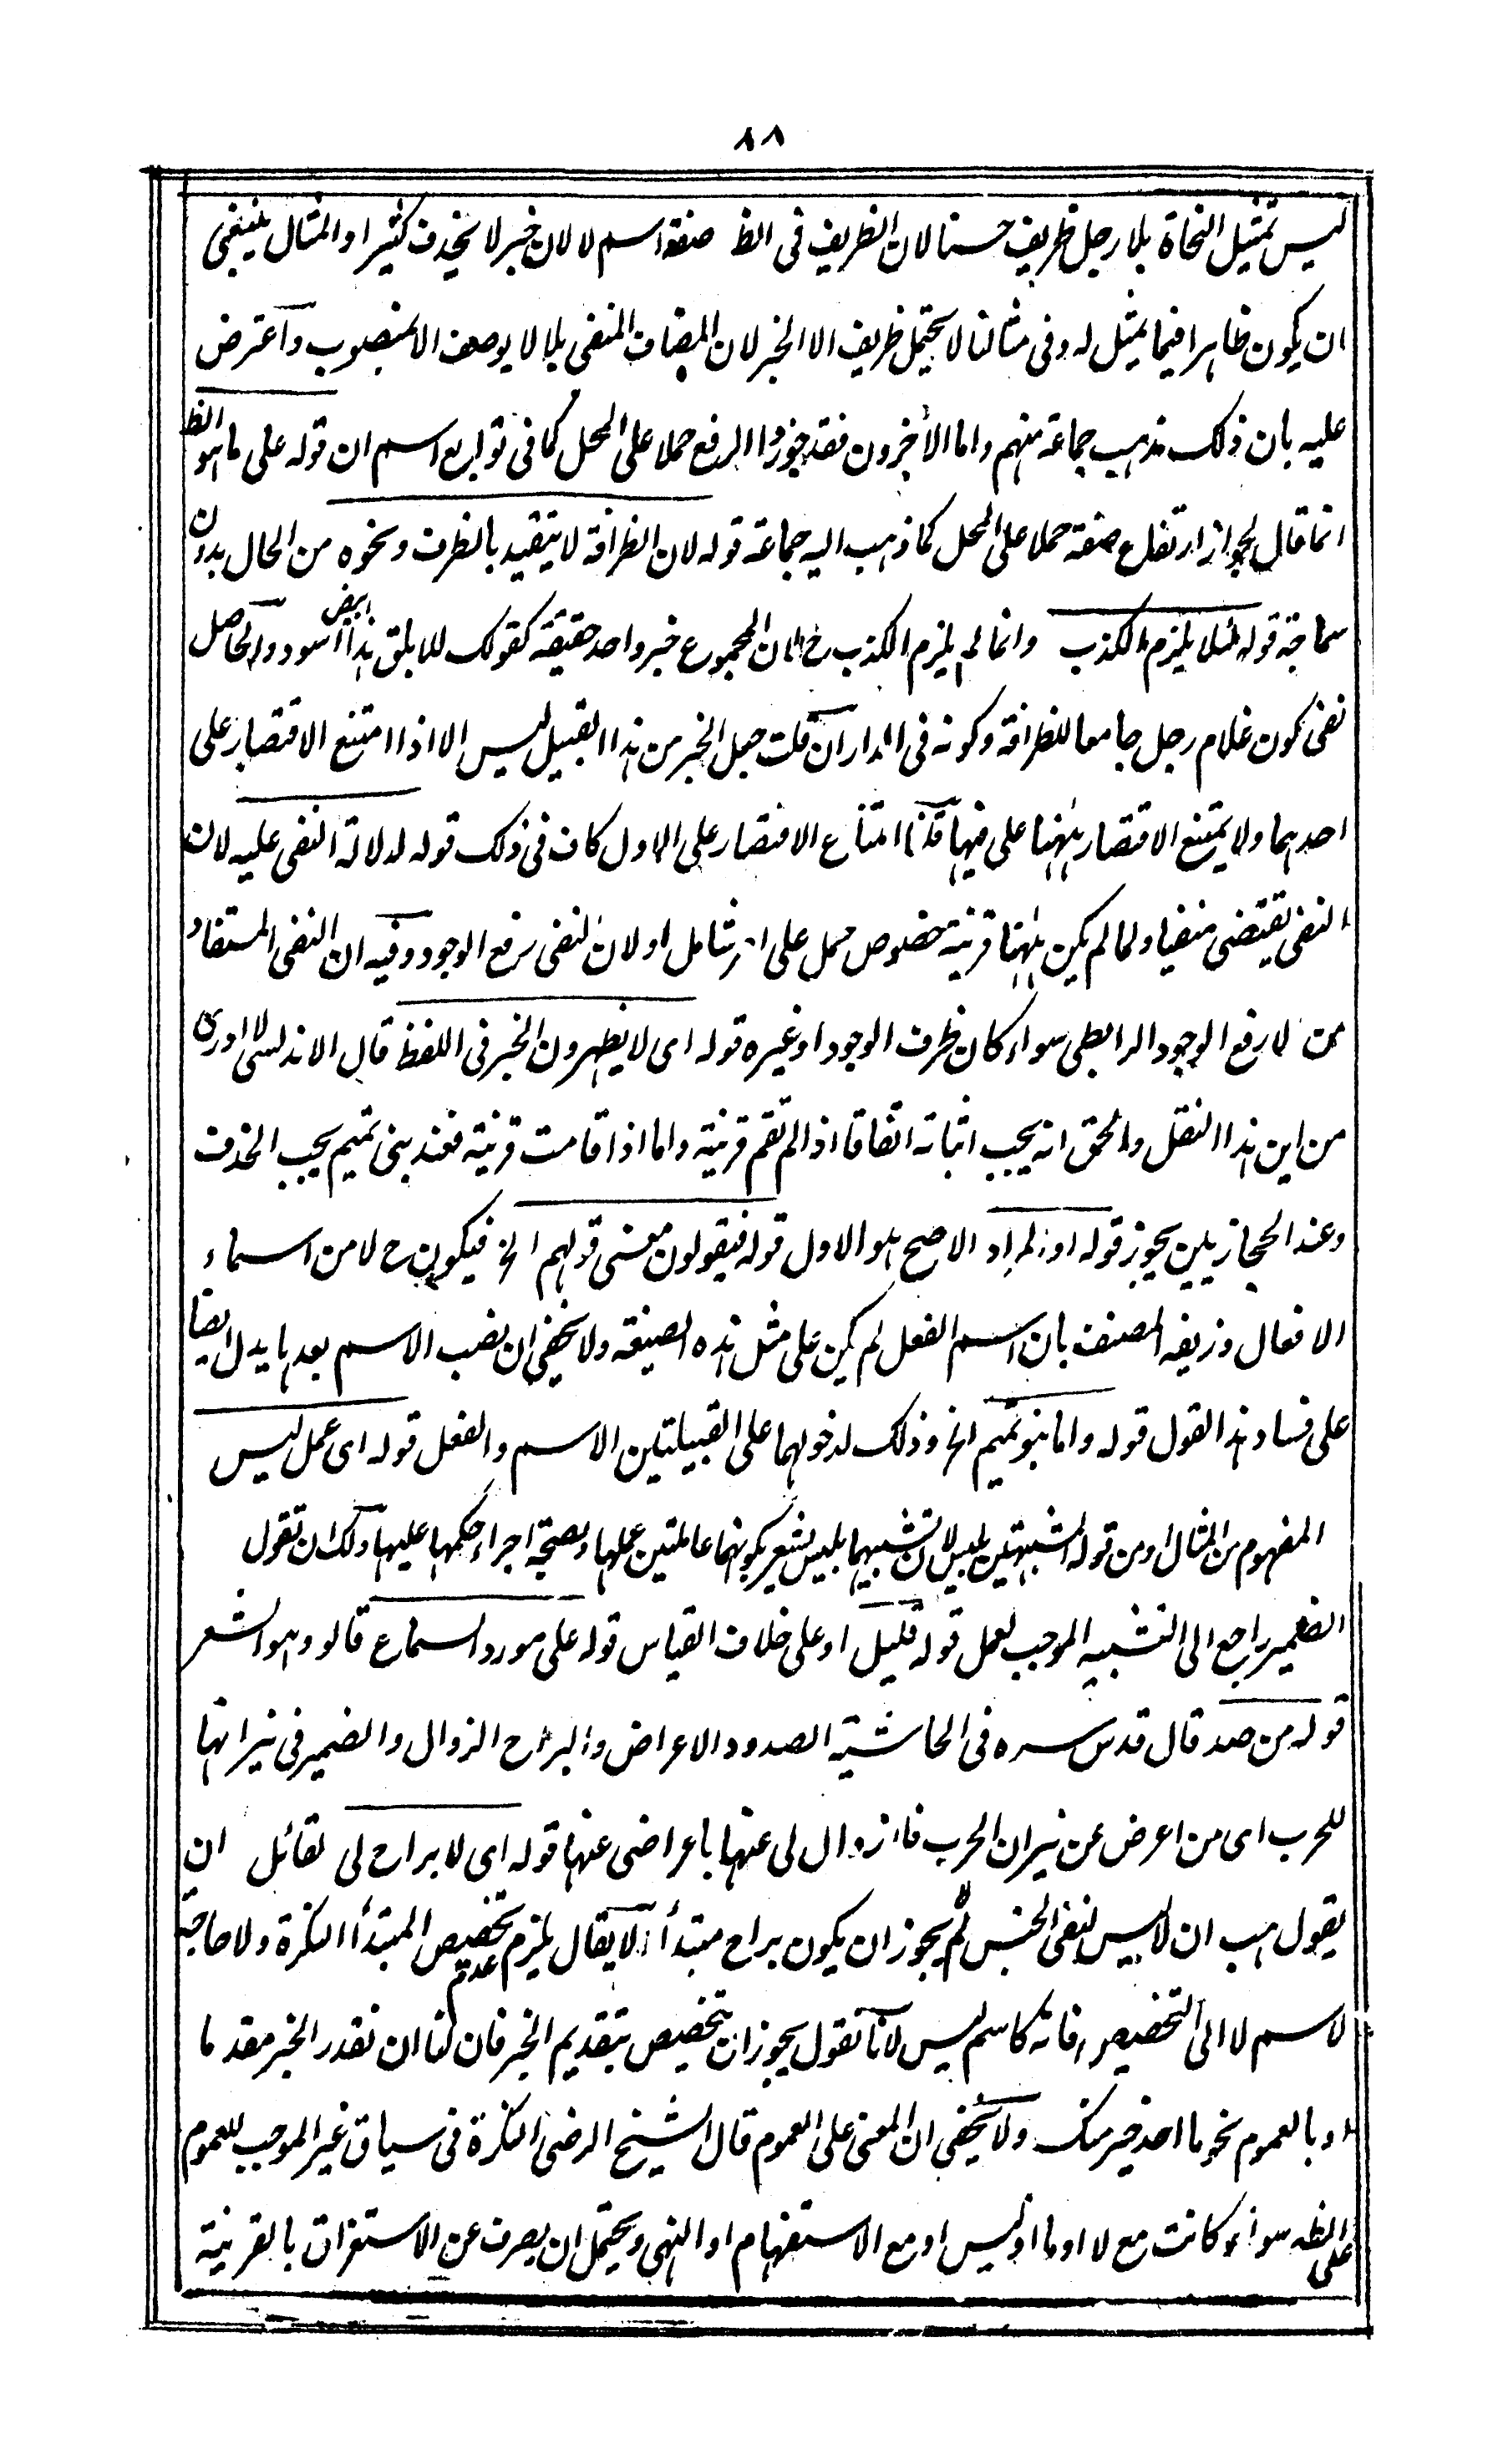 ٨٨
ليس تمثيل النحاة بلا رجل ظريف حسنا لان الظريف فى الظ صفة اسم لا لان خبر لا يحذف كثيرا و المثال ينبغى
ان يكون ظاهرا فيما يمثل له و فى مثالنا لا يحتمل ظريف الا الخبر لان المضاف المنفى بلا لا يوصف الا بمنصوب و اعترض
عليه بان ذلك مذهب جماعة منهم و اما الآخرون فقد جوزوا الرفع حملا على المحل كما فى توابع اسم ان قوله على ما هو الظ
انما قال لجواز ارتفاع صفة حملا على المحل كما ذهب اليه جماعة قوله لان الظرافة لا يتقيد بالظرف و نحوه من الحال بدون
سماجة قوله لئلا يلزم الكذب و انما لم يلزم الكذب ح لان المجموع خبر واحد حقيقة كقولك للابلق هذا ابيض اسود و الحاصل
نفى كون غلام رجل جامعا للظرافة و كونه فى الدار ان قلت جعل الخبر من هذا القبيل ليس الا اذا امتنع الاقتصار على
احدهما و لا يمتنع الاقتصار ههنا على فيها قلنا امتناع الاقتصار على الاول كاف فى ذلك قوله لدلالة النفى عليه لان
النفى يقتضى منفيا و لما لم يكن ههنا قرينة خصوص حمل على امر شامل او لان النفى رفع الوجود و فيه ان النفى المستفاد
من لا رفع الوجود الرابطى سواء كان ظرف الوجود او غيره قوله اى لا يظهرون الخبر فى اللفظ قال الاندلسى لا ادرى
من اين هذا النقل و الحق انه يجب اثباته اتفاقا اذا لم تقم قرينة و اما اذا قامت قرينة فعند بنى تميم يجب الحذف
و عند الحجازيين يجوز قوله او المراد الاصح هو الاول قوله فيقولون معنى قولهم الخ فيكون ح لا من اسماء
الافعال و زيفه المصنف بان اسم الفعل لم يكن على مثل هذه الصيغة و لا يخفى ان نصب الاسم بعدها يدل ايضا
على فساد هذا القول قوله و اما بنو تميم الخ و ذلك لدخولهما على القبيلتين الاسم و الفعل قوله اى عمل ليس
المفهوم من المثال او من قوله المشبهتين بليس لان تشبيههما بليس يشعر بكونهما عاملتين عملها و بصحة اجراء حكمها عليهما و لك ان تقول
الضمير راجع الى التشبيه الموجب لعمل قوله قليل او على خلاف القياس قوله على مورد السماع قالوا و هو الشعر
قوله من صد قال قدس سره فى الحاشية الصدود الاعراض و البراح الزوال و الضمير فى نيرانها
للحرب اى من اعرض عن نيران الحرب فلا زوال لى عنها باعراضى عنها قوله اى لا براح لى لقائل ان
يقول هب ان لا ليس لنفى الجنس لم يجوز ان يكون براح مبتدأ لا يقال يلزم عدم تخصيص المبتدأ النكرة و لا حاجة
لاسم لا الى التخصيص فانه كاسم ليس لانا نقول يجوز ان تخصيص بتقديم الخبر فان لنا ان نقدر الخبر مقدما
او بالعموم نحو ما احد خير منك و لا يخفى ان المعنى على العموم قال الشيخ الرضى النكرة فى سياق غير الموجب للعموم
على الظ سواء كانت مع لا او ما او ليس او مع الاستفهام او النهى و يحتمل ان يصرف عن الاستغراق بالقرينة